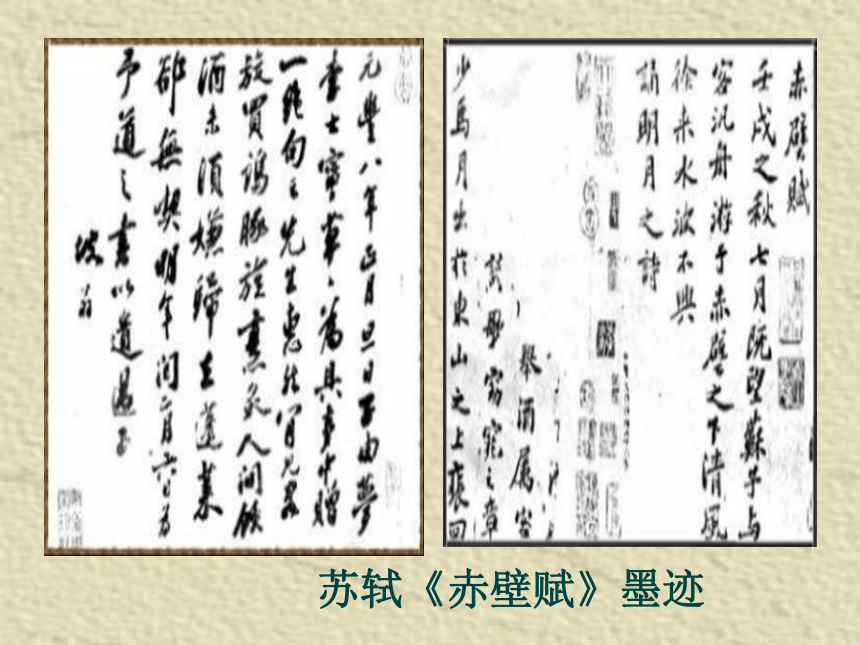 赤壁賦
壬戌之秋七月既望蘇子与
客汎舟游于赤壁之下清風
徐来水波不興
誦明月之詩
舉酒属客
歌窈窕之章
少焉月出於東山之上裴回
元豐八年正月旦日子由夢
李士寧草〻為具夢中贈
一絶句云先生惠然肯見客
旋買鷄豚旋烹炙人間飲
酒未須嫌歸去蓬萊
卻無喫明年閏二月六日為
予道之書以遺過子
坡翁
苏轼《赤壁赋》墨迹